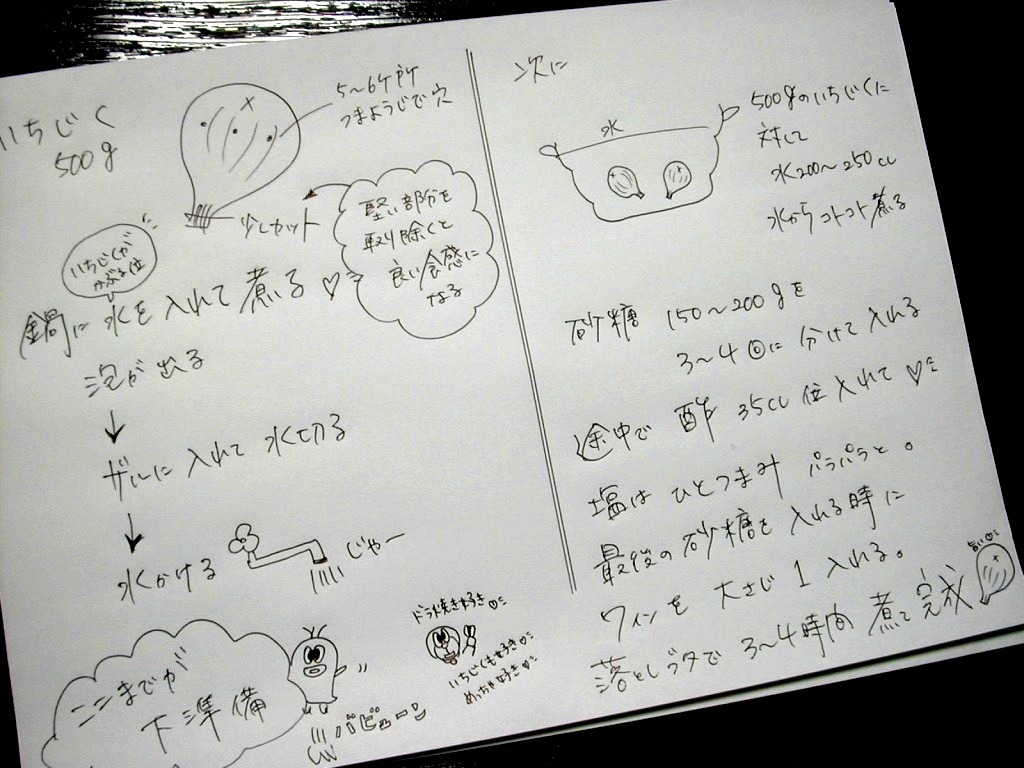 いちじく
500g
5〜6ケ所
つまようじで穴
少しカット
堅い部分を
取り除くと
良い食感に
なる
いちじくが
かぶる位
鍋に 水を入れて煮る♡
泡が出る
↓
ザルに入れて水切る
↓
水かける
じゃー
ここまでが
下準備
バビューン
ドラ焼き好き
いちじくも好き
めっちゃ好き
次に
水
500gのいちじくに
対して
水200〜250cc
水からコトコト煮る
砂糖 150〜200gを
3〜4回に分けて入れる
途中で 酢 35cc位入れて♡
塩は ひとつまみ パラパラと。
最後の砂糖を入れる時に
ワインを 大さじ1入れる。
落としブタで 3〜4時間 煮て完成